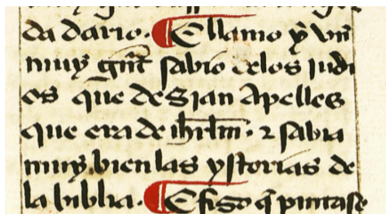 da dario. ¶ E llamo y̾ vn̄
muy gn̄t sabio delos judi
os que dezian Apelles
que era de ih̄rl̄m. ⁊ sabia
muy bien las ystorias de
la biblia. ¶ E fizo q̄ pintase